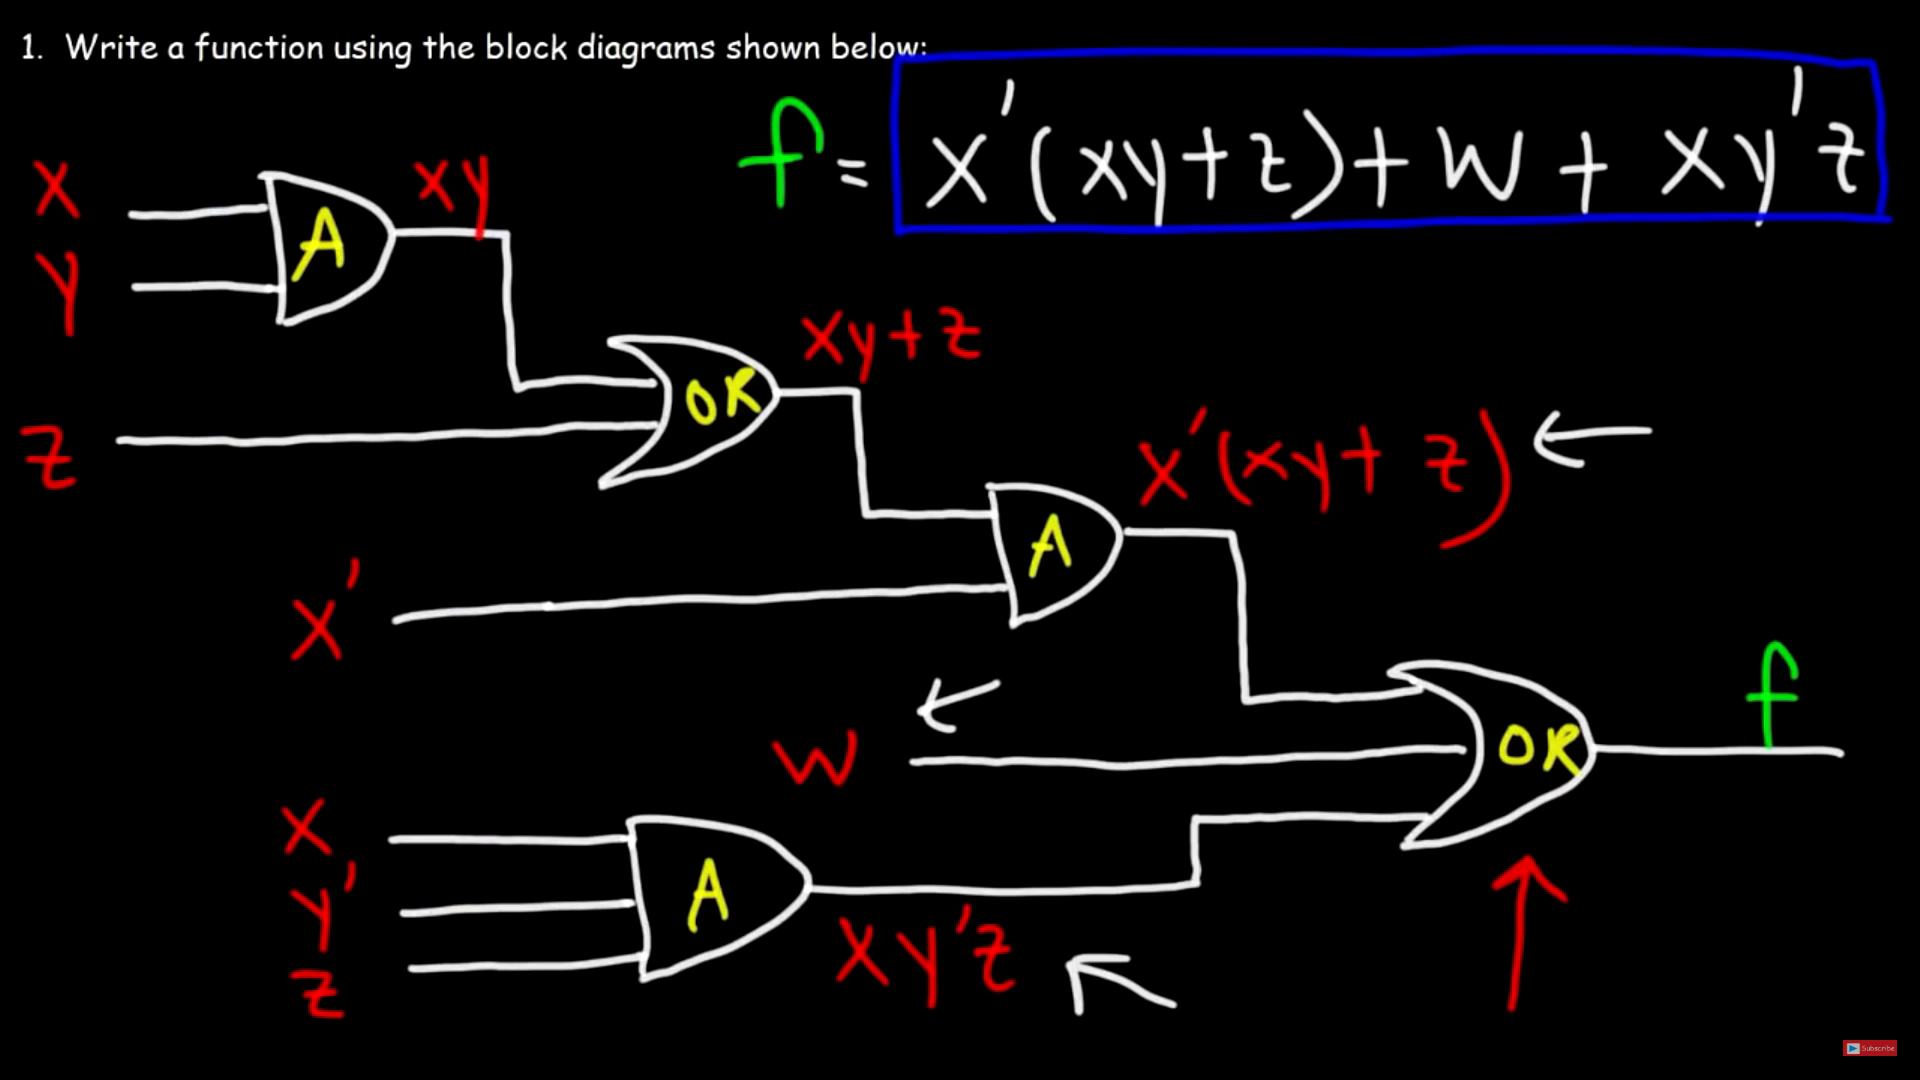 1. Write a function using the block diagrams shown below:
f = x'(xy+z)+w+xy'z
x
y
A
xy
z
OR
xy+z
x'
A
x'(xy+z)
w
OR
f
x
y'
z
A
xy'z
Subscribe